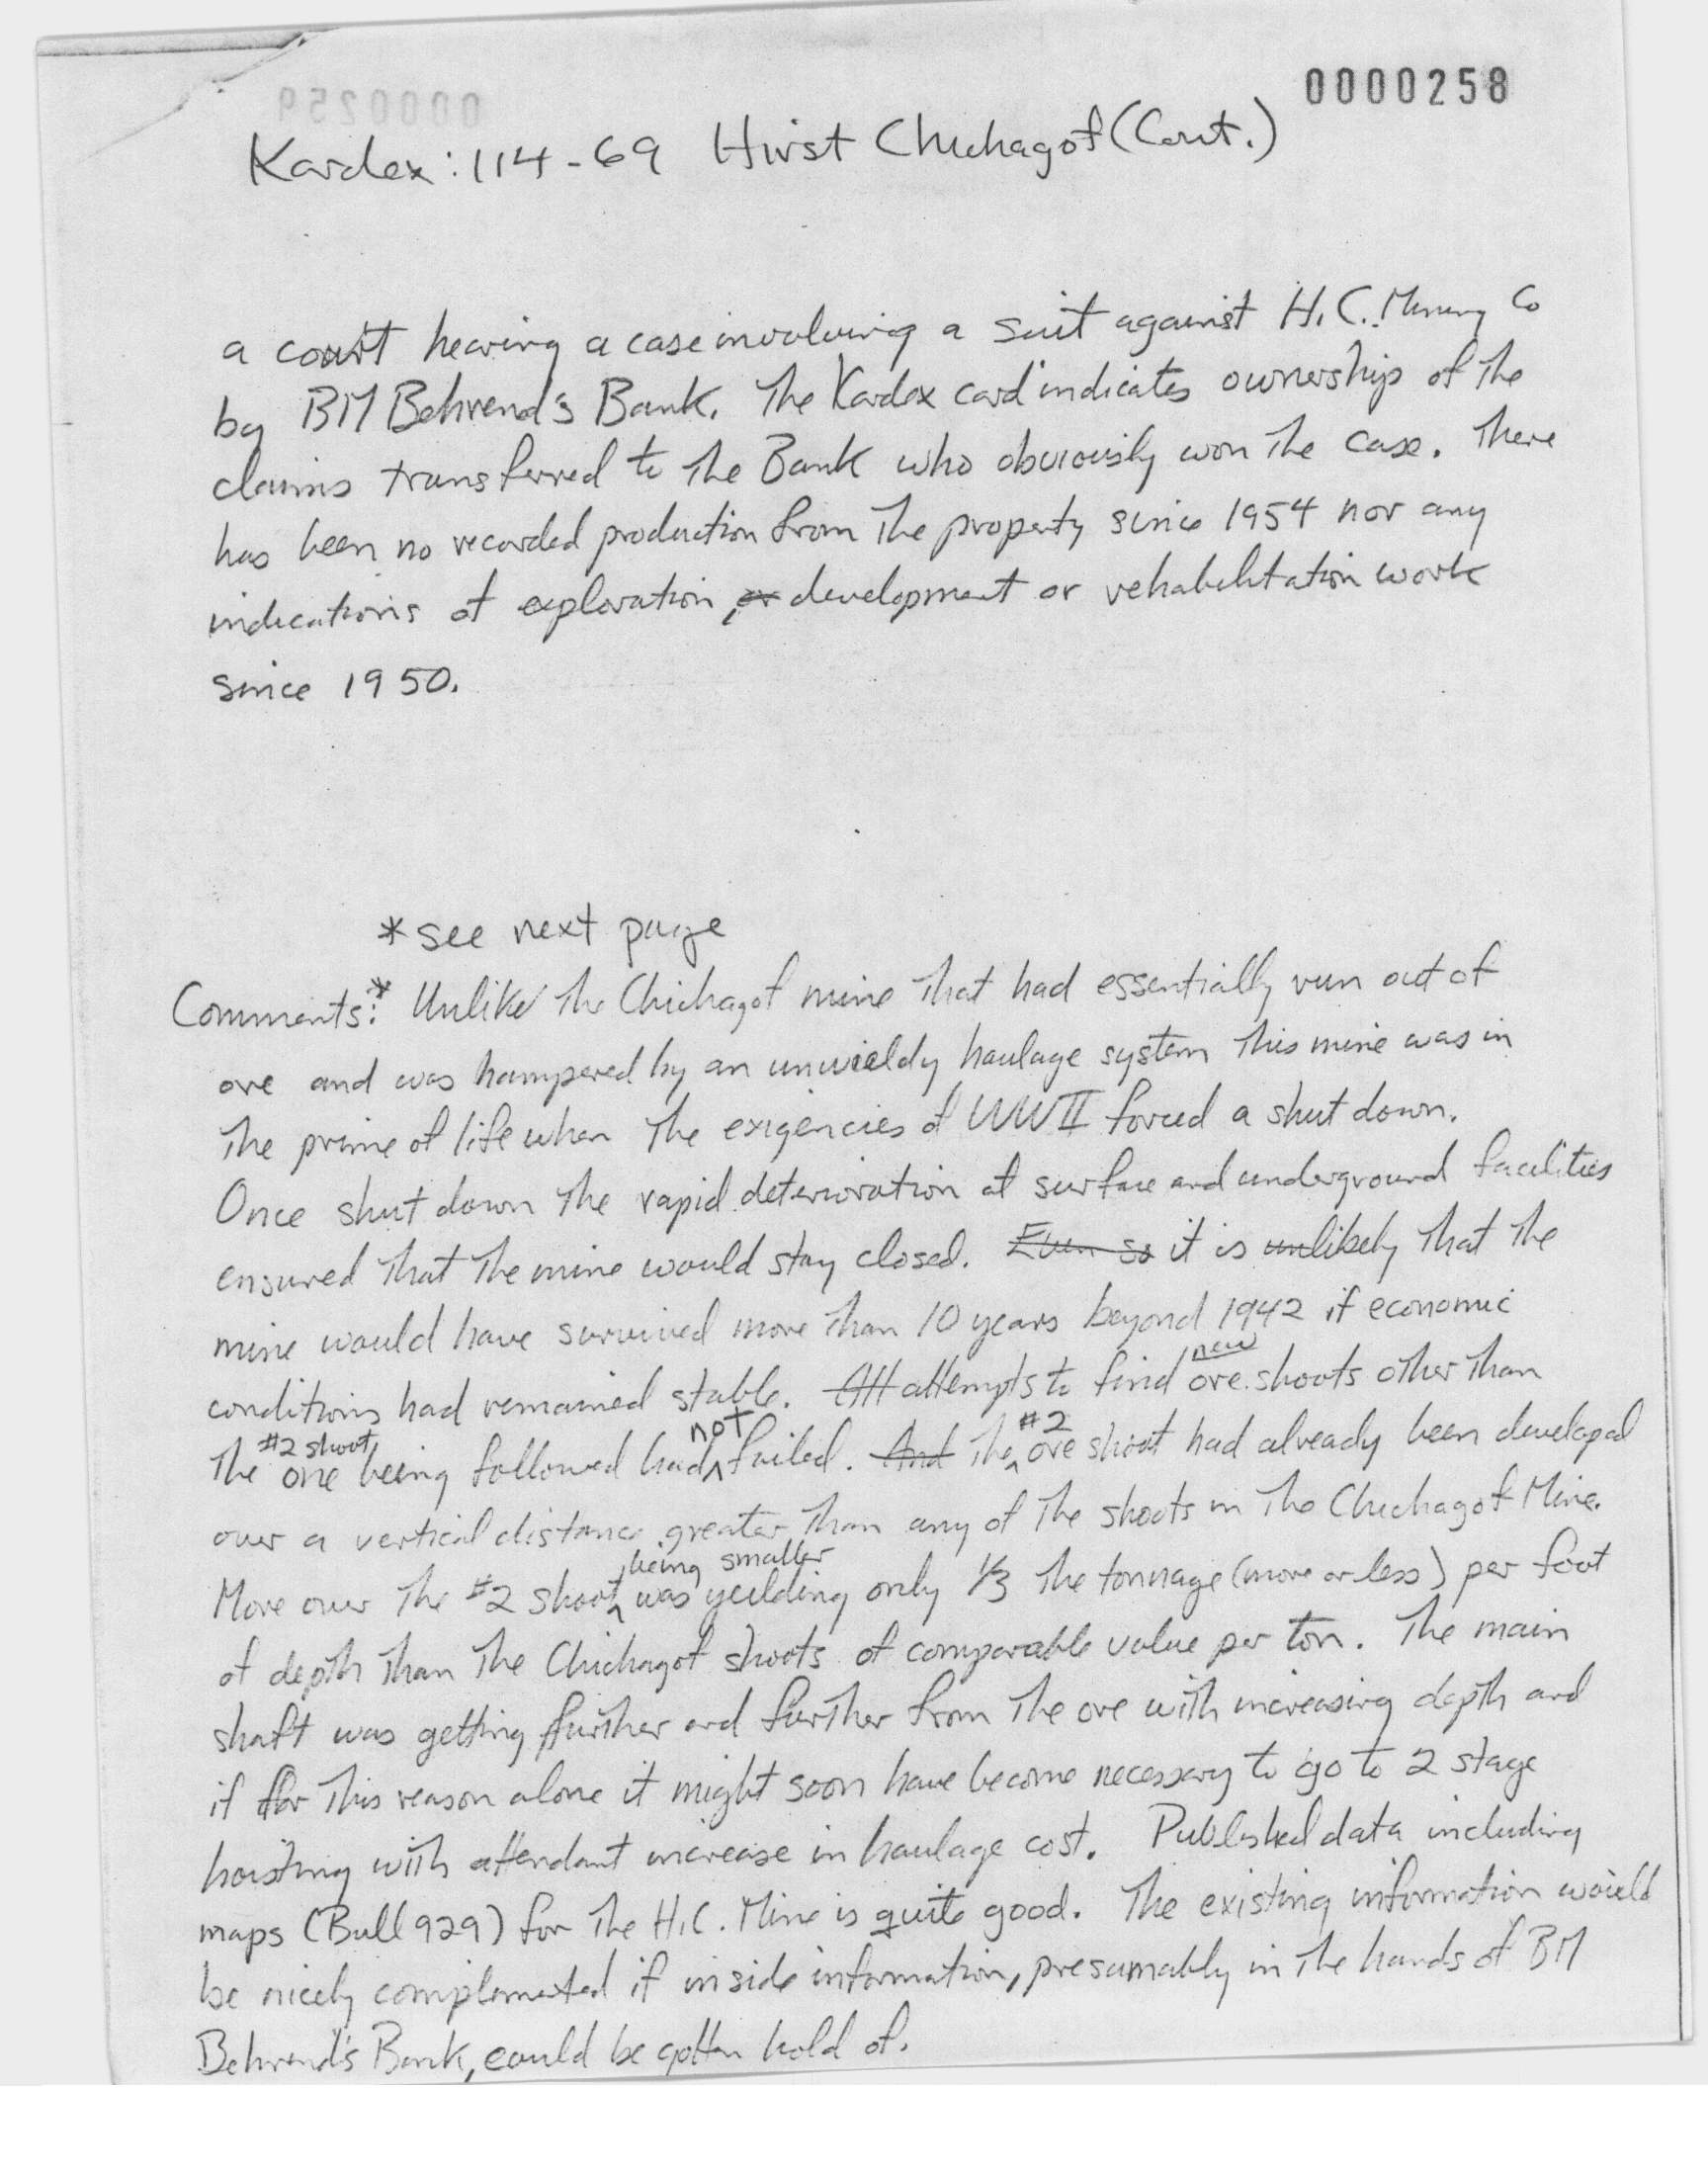 0000258
Kardex: 114-69 Hirst Chichagof (Cont.)
a court hearing a case involving a suit against H.C. Mining Co
by BM Behrend's Bank. The Kardex card indicates ownership of the
claims transferred to the Bank who obviously won the case. There
has been no recorded production from the property since 1954 nor any
indications of exploration, or development or rehabilitation work
since 1950.
*see next page
Comments:* Unlike the Chichagof mine that had essentially run out of
ore and was hampered by an unwieldy haulage system this mine was in
the prime of life when the exigencies of WWII forced a shut down.
Once shut down the rapid deterioration of surface and underground facilities
ensured that the mine would stay closed. Even so it is unlikely that the
mine would have survived more than 10 years beyond 1942 if economic
new
conditions had remained stable. All attempts to find ore shoots other than
#2 shoot not #2
the one being followed had failed. And the ore shoot had already been developed
over a vertical distance greater than any of the shoots in the Chichagof Mine.
being smaller
More over the #2 shoot was yeilding only 1/3 the tonnage (more or less) per foot
of depth than the Chichagof shoots of comparable value per ton. The main
shaft was getting further and further from the ore with increasing depth and
if for this reason alone it might soon have become necessary to go to 2 stage
hoisting with attendant increase in haulage cost. Published data including
maps (Bull 929) for the H.C. Mine is quite good. The existing information would
be nicely complemented if inside information, presumably in the hands of BM
Behrend's Bank, could be gotten hold of.